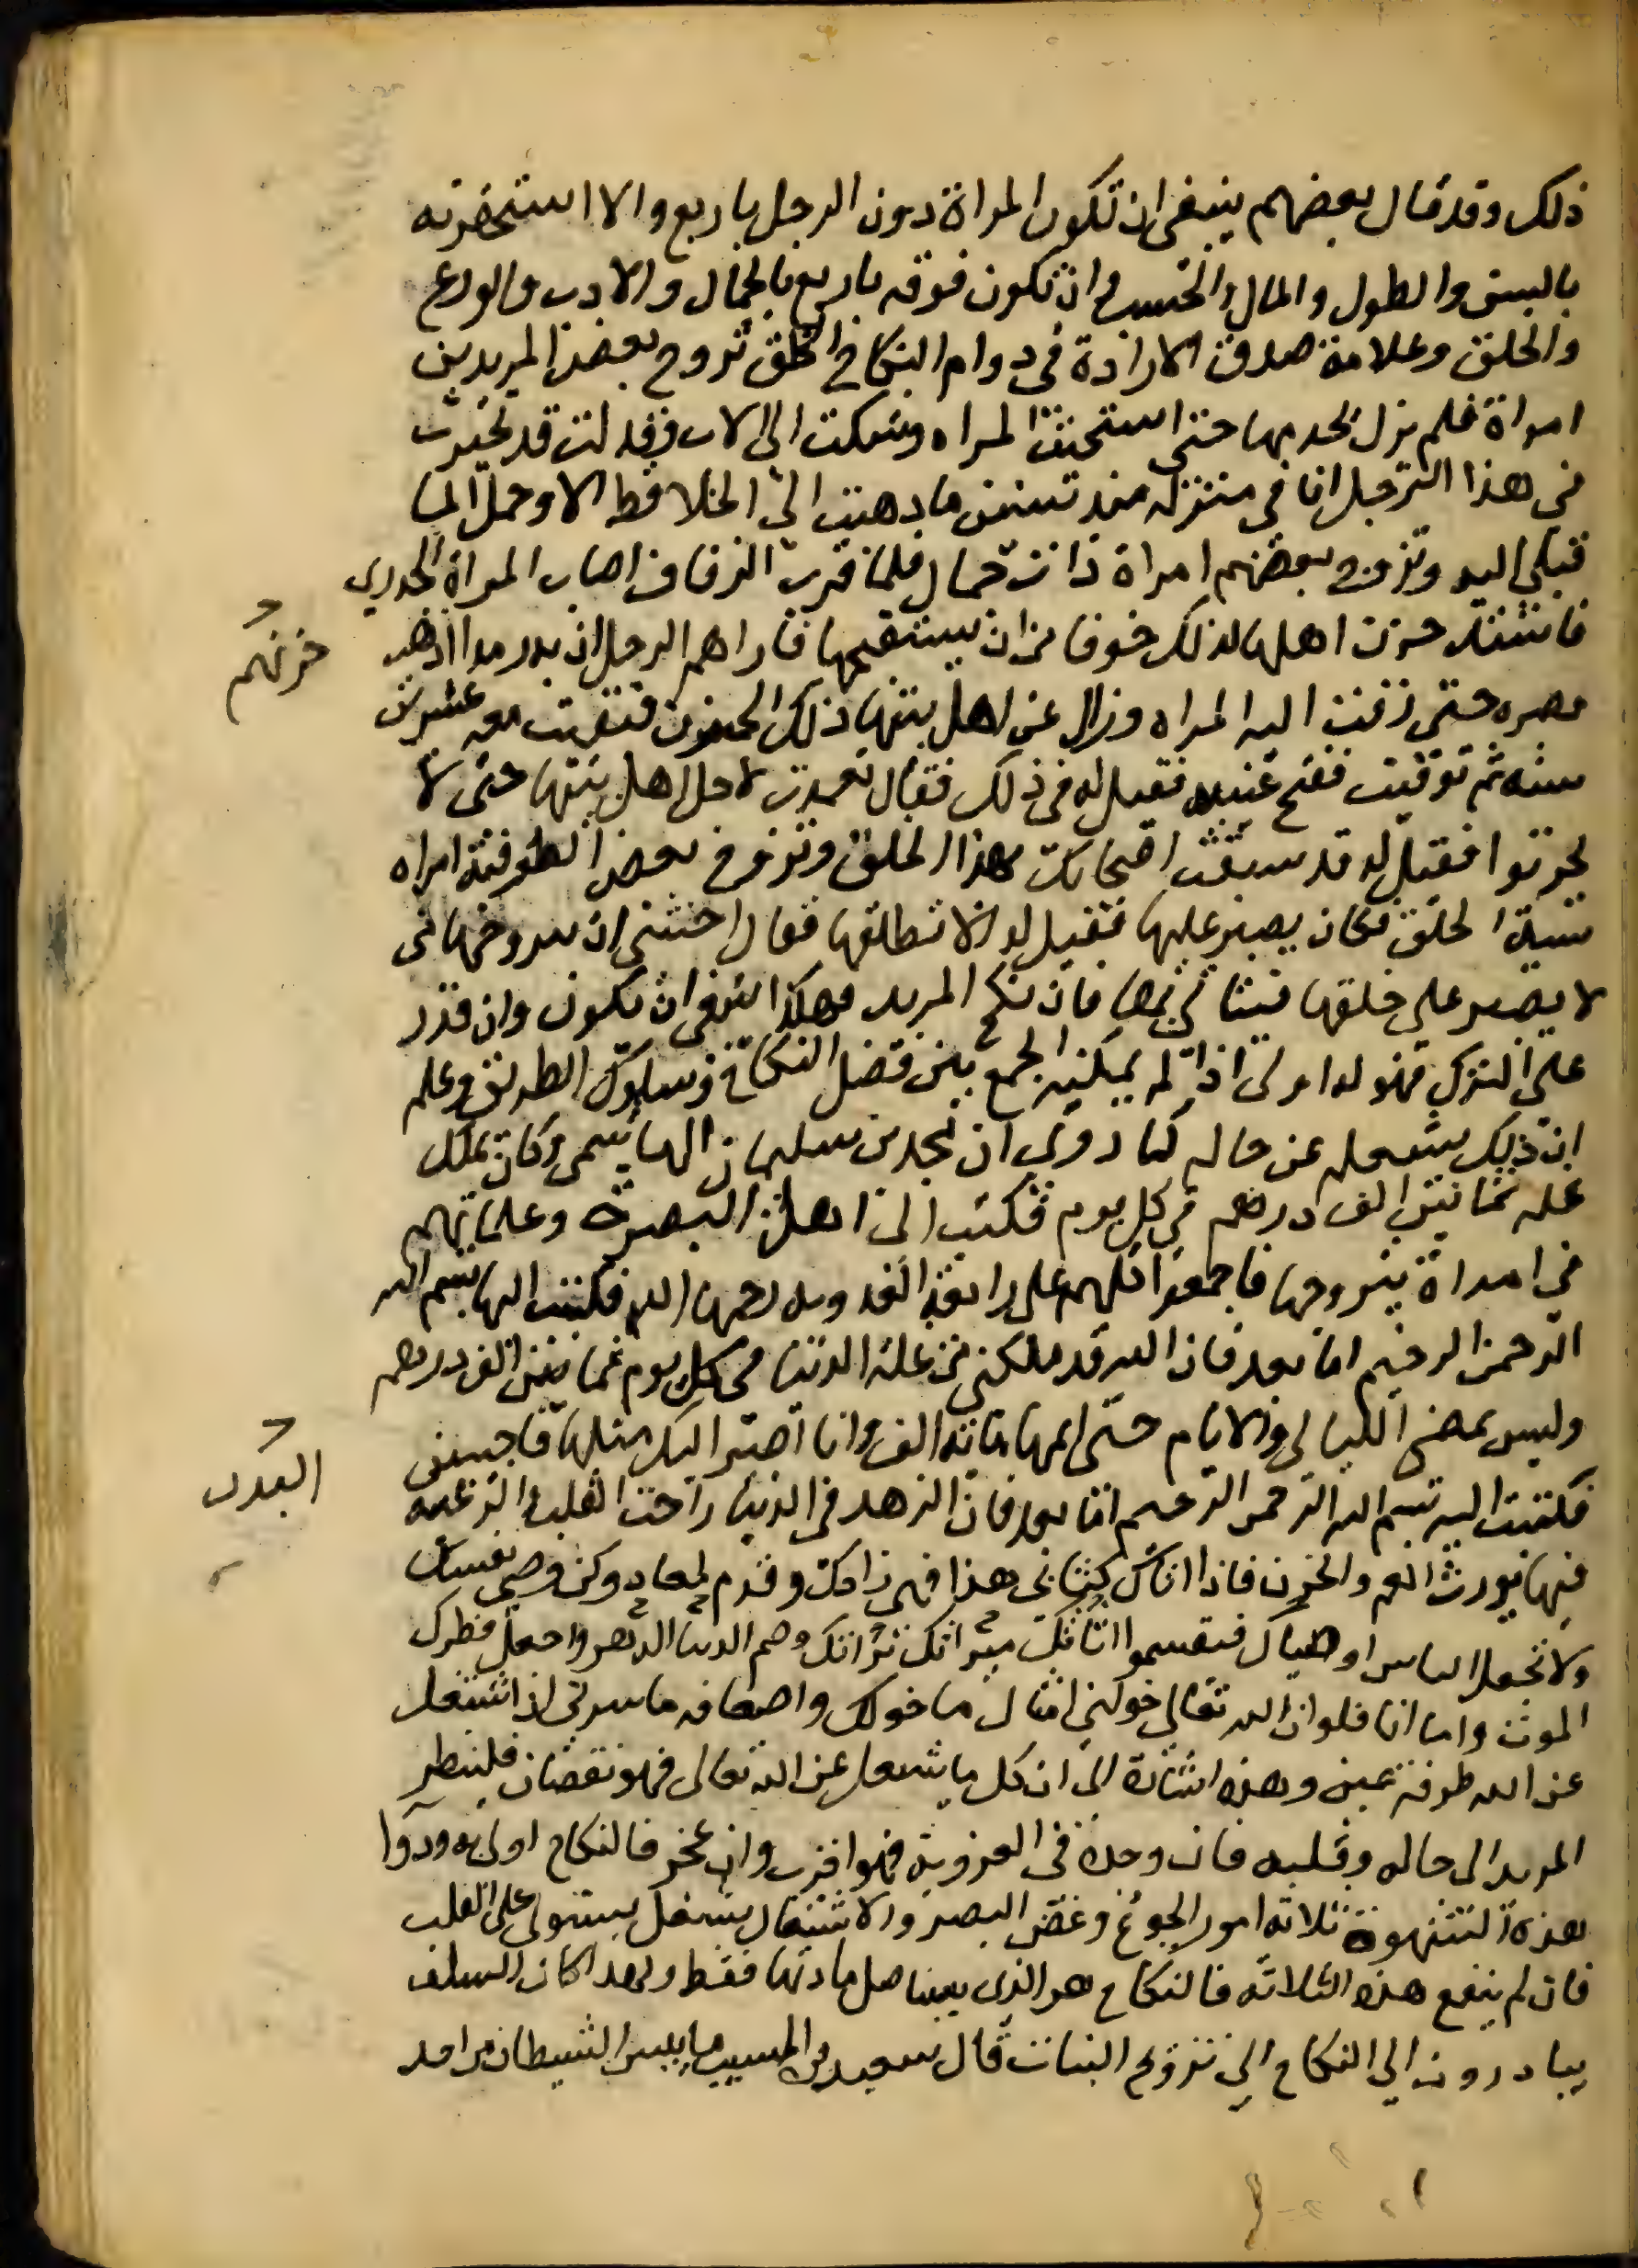 ذلك وقد قال بعضهم ينبغي ان تكون المراة دون الرجل باربع والا استحقرته
بالسن والطول والمال والحسب وان تكون فوقه باربع بالجمال والادب والورع
والخلق وعلامة صدق الارادة في دوام النكاح الخلق تزوج بعض المريدين
امراة فلم يزل يخدمها حتى استحيت المراه وشكت الى الاب وقالت قد تحيرت
في هذا الرجل انا في منزله منذ سنين ما ذهبت الى الخلا قط الا وحمل الما
قبلي اليه وتزوج بعضهم امراة ذات جمال فلما قرب الزفاف اصاب المراة الجدري
فاشتد حزن اهلها لذلك خوفا من ان يستقبحها فاراهم الرجل ان به رمدا اذهب
حزنهم
بصره حتى زفت اليه المراه وزال عن اهل بيتها ذلك الحزن فبقيت معه عشرين
سنه ثم توفيت ففتح عينيه فقيل له في ذلك فقال تعمدت لاجل اهل بيتها حتى لا
يحزنوا فقيل له قد سبقت اصحابك بهذا الخلق وتزوج بعض الصوفية امراه
سيئة الخلق فكان يصبر عليها فقيل له الا تطلقها فقال اخشى ان يتزوجها من
لا يصبر على خلقها فيتاذى بها فان نكح المريد فهكذا ينبغي ان يكون وان قدر
على الترك فهو له اولى اذا لم يمكنه الجمع بين فضل النكاح وسلوك الطريق وعلم
ان ذلك يشغله عن حاله كما روي ان محمد بن سليمان الهاشمي وكان يملك
غله ثمانين الف درهم في كل يوم فكتب الى اهل البصرة وعلمائهم
في امراة يتزوجها فاجمعوا كلهم على رابعة العدويه رحمها الله فكتب اليها بسم الله
الرحمن الرحيم اما بعد فان الله قد ملكني من غلة الدنيا في كل يوم ثمانين الف درهم
وليس تمضي الليالي والايام حتى اتمها مائة الف وانا اصير اليك مثلها فاجيبني
فكتبت اليه بسم الله الرحمن الرحيم اما بعد فان الزهد في الدنيا راحت القلب والرغبه
البدن
فيها تورث الهم والحزن فاذا اتاك كتابي هذا فهي زادك وقدم لمعادك وكن وصي نفسك
ولا تجعل الناس اوصياك فيقسموا ميراثك تراثك وصم الدنيا الدهر واجعل فطرك
الموت واما انا فلو ان الله تعالى خولني امثال ما خولك واضعافه ما سرني ان اشتغل
عن الله طرفة عين وهذه اشارة الى ان كل ما يشغل عن الله تعالى فهو نقصان فلينظر
المريد الى حاله وقلبه فان وجده في العزوبة فهو اقرب وان عجز فالنكاح اولى به ودوا
هذه الشهوة ثلاثه امور الجوع وغض البصر والاشتغال بشغل يستولى على القلب
فان لم ينفع هذه الثلاثه فالنكاح هو الذي يستاصل مادتها فقط ولهذا كان السلف
يبادرون الي النكاح والي تزويج البنات قال سعيد بن المسيب ما ايس الشيطان من احد